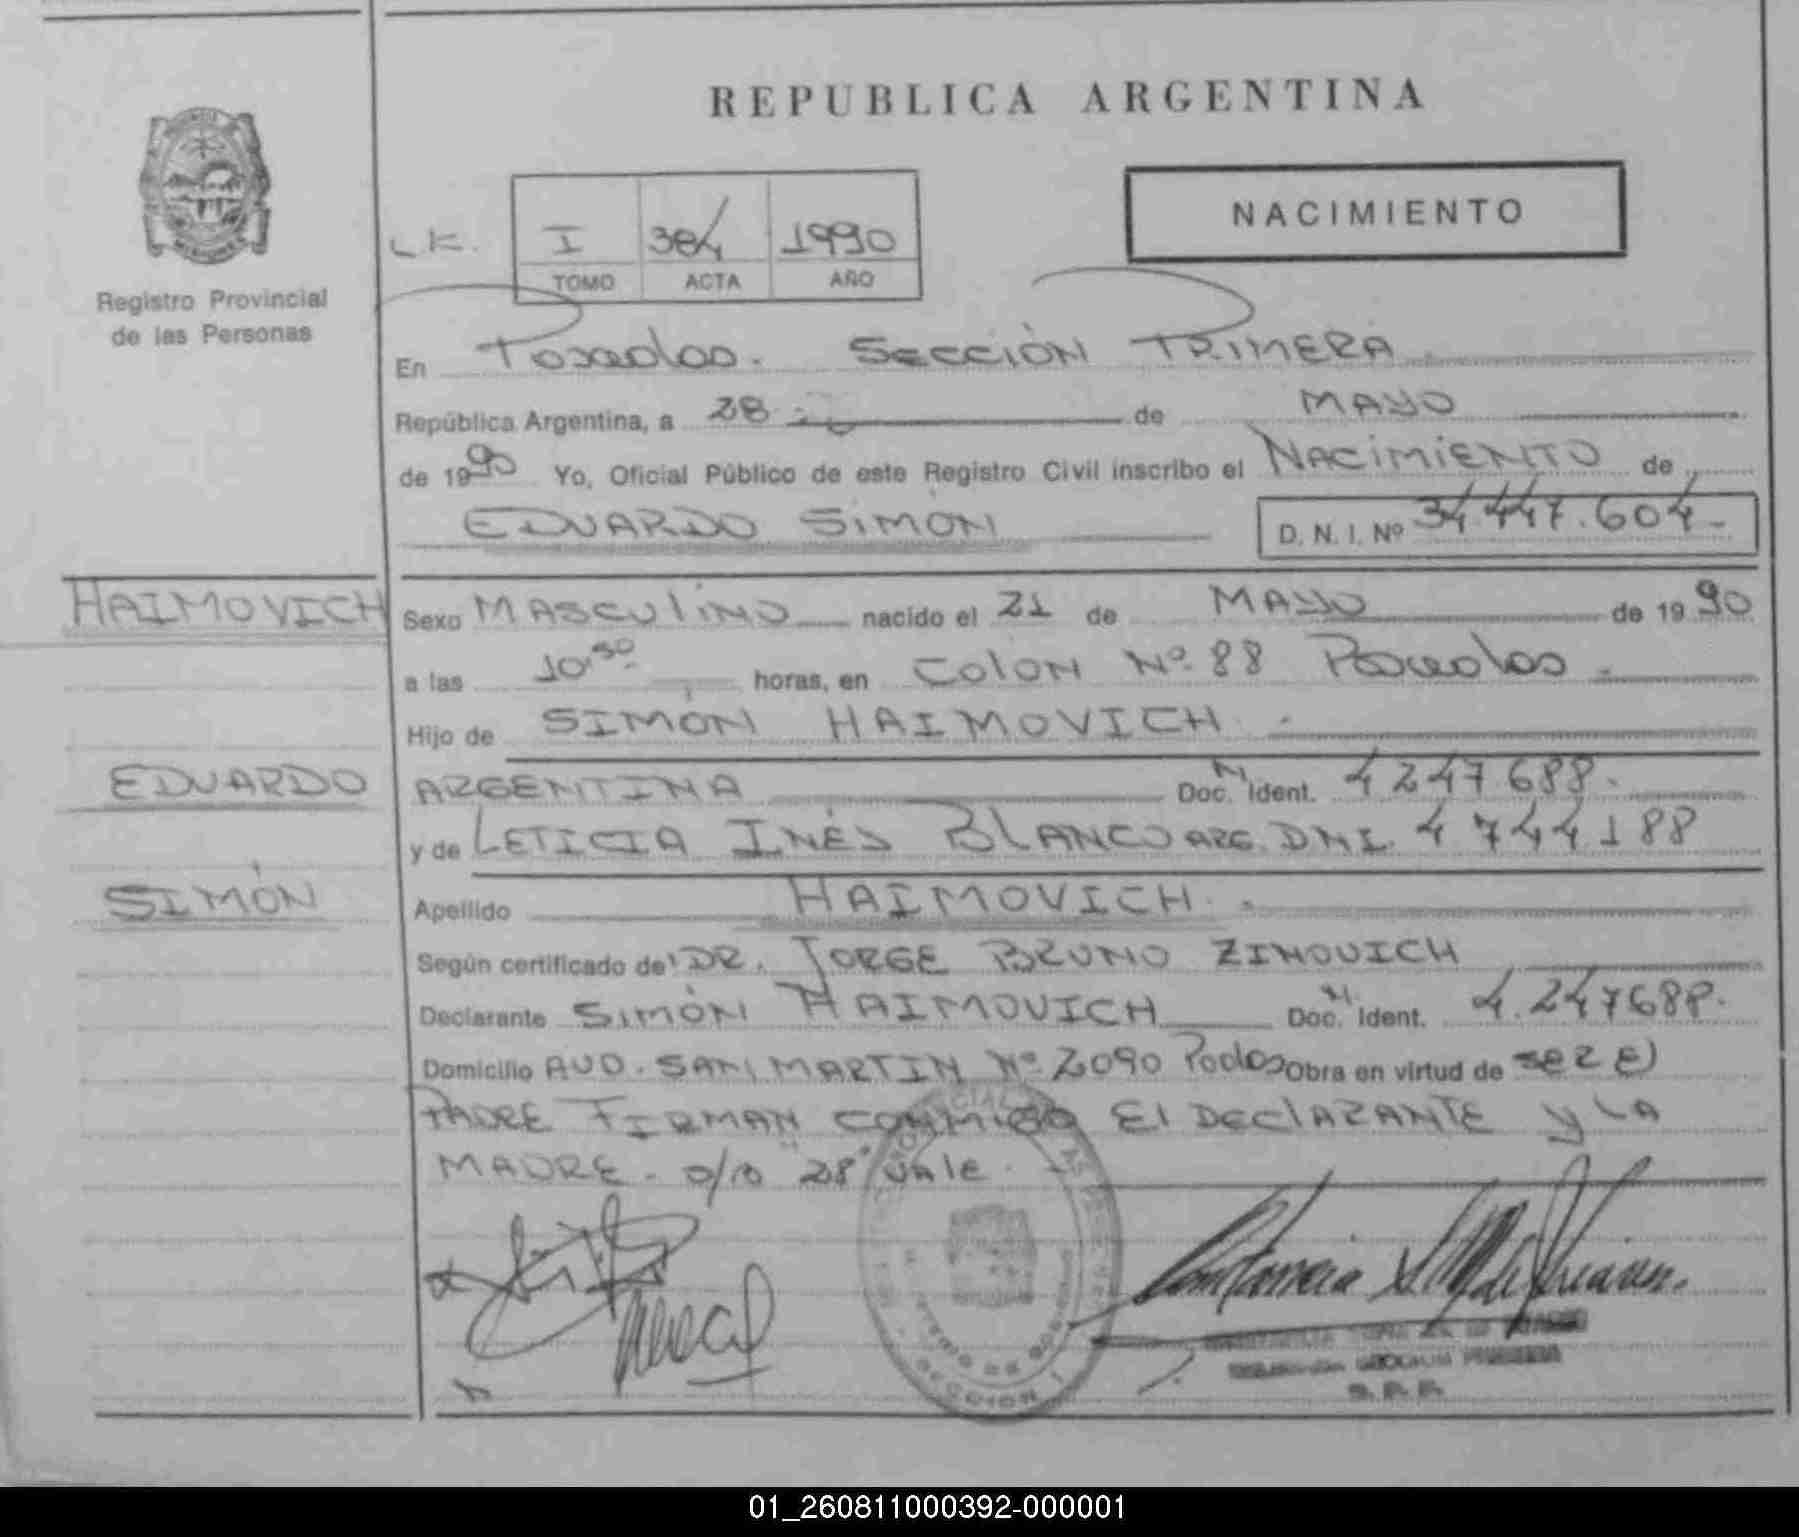 REPUBLICA ARGENTINA
NACIMIENTO
L.K. I 384 1990
TOMO ACTA AÑO
Registro Provincial
de las Personas
En Posadas. SECCIÓN PRIMERA
República Argentina, a 28 de MAYO
de 1990 Yo, Oficial Público de este Registro Civil inscribo el NACIMIENTO de
EDUARDO SIMÓN D. N. I. Nº 34.447.604
HAIMOVICH
EDUARDO
SIMÓN
Sexo MASCULINO nacido el 21 de MAYO de 1990
a las 10.30 horas, en COLON Nº 88 Posadas.
Hijo de SIMÓN HAIMOVICH
ARGENTINA Doc. Ident. 4247.688.
y de LETICIA INÉS BLANCO ARG. DNI. 4744188
Apellido HAIMOVICH.
Según certificado del DR. JORGE BRUNO ZINOVICH
Declarante SIMÓN HAIMOVICH Doc. Ident. 4.247688.
Domicilio AVD. SAN MARTIN Nº 2090 Podos Obra en virtud de SER El
PADRE FIRMAN CONMIGO El DEClARANTE y LA
MADRE. "28" VALE.
SECCION 1
01_260811000392-000001